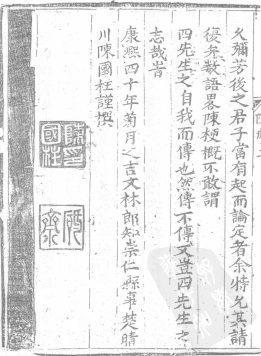 久彌芳後之君子當有起而論定者余特允其請
復弁數語畧陳梗概不敢謂
四先生之自我而傳也然傳不傳又豈四先生之
志哉旹
康熙四十年菊月之吉文林郎知崇仁縣事楚晴
川陳國柱謹撰
陳印
國柱